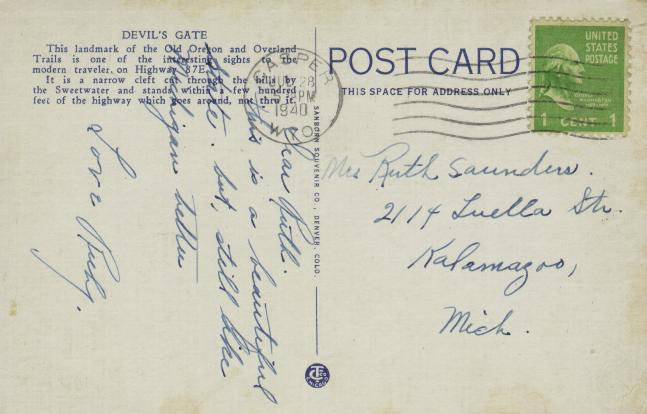 DEVIL'S GATE
This landmark of the Old Oregon and Overland
Trails is one of the interesting sights to the
modern traveler, on Highway 87E.
It is a narrow cleft cut through the hills by
the Sweetwater and stands within a few hundred
feet of the highway which goes around, not thru it.
Dear Ruth.
This is a beautiful
State. but, still like
Michigan better
Love Ruby.
SANBORN SOUVENIR CO., DENVER, COLO.
CASPER
28
PM
1940
WYO.
POST CARD
THIS SPACE FOR ADDRESS ONLY
UNITED
STATES
POSTAGE
1 CENT 1
Mrs Ruth Saunders.
2114 Luella Str.
Kalamazoo,
Mich.